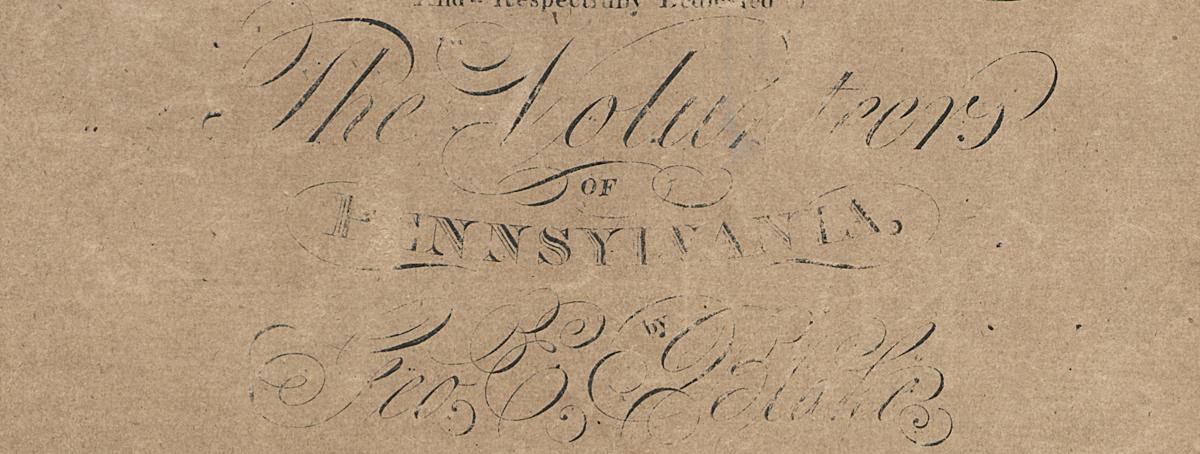 And Respectfully Dedicated
The Volunteers
OF
PENNSYLVANIA,
by
Geo. E. Blake